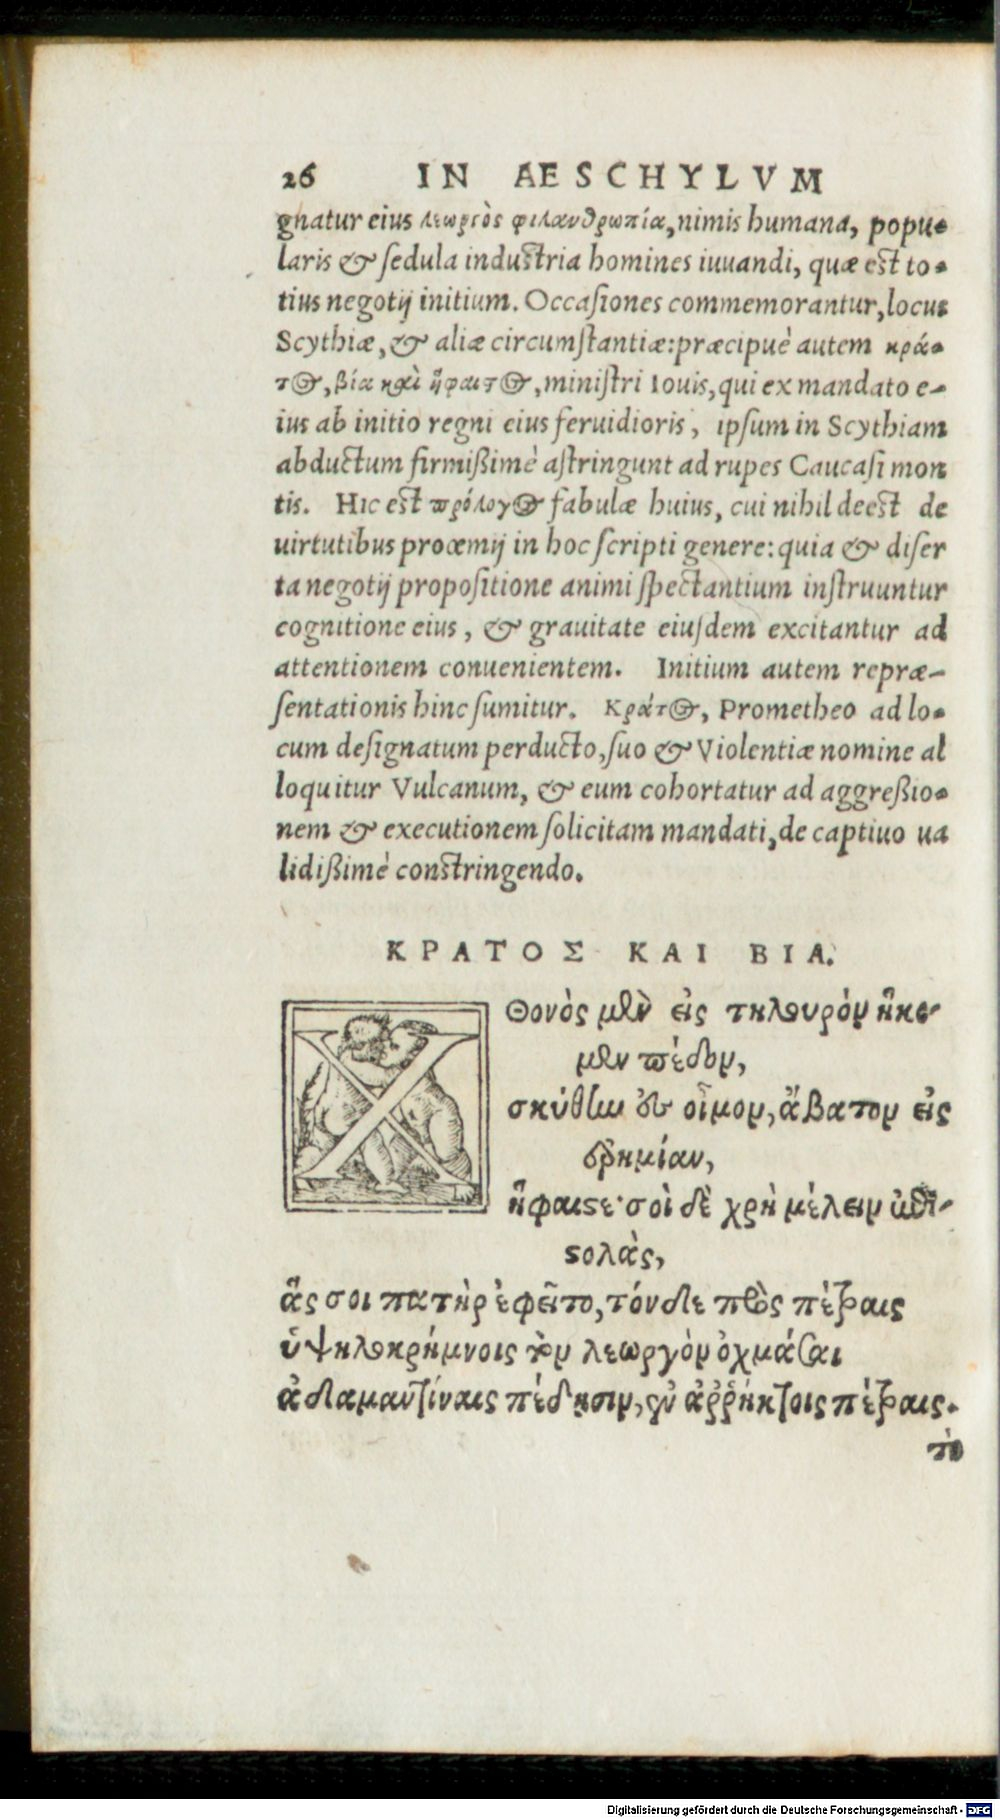 26 IN AESCHYLVM
gnatur eius λεωργὸς φιλανθρωπία, nimis humana, popu-
laris & sedula industria homines iuuandi, quæ est to-
tius negotij initium. Occasiones commemorantur, locus
Scythiæ, & aliæ circumstantiæ: præcipuè autem κρά-
τος, βία καὶ ἥφαιστος, ministri Iouis, qui ex mandato e-
ius ab initio regni eius feruidioris, ipsum in Scythiam
abductum firmißimè astringunt ad rupes Caucasi mon
tis. Hic est πρόλογος fabulæ huius, cui nihil deest de
uirtutibus proœmij in hoc scripti genere: quia & diser
ta negotij propositione animi spectantium instruuntur
cognitione eius, & grauitate eiusdem excitantur ad
attentionem conuenientem. Initium autem repræ-
sentationis hinc sumitur. Κράτος, Prometheo ad lo-
cum designatum perducto, suo & Violentiæ nomine al
loquitur Vulcanum, & eum cohortatur ad aggreßio-
nem & executionem solicitam mandati, de captiuo ua
lidißimè constringendo.
ΚΡΑΤΟΣ ΚΑΙ ΒΙΑ.
Χθονὸς μὲν εἰς τηλουρὸν ἥκο-
μεν πέδον,
σκύθην ἐς οἶμον, ἄβατον εἰς
ἐρημίαν,
ἥφαιστε· σοὶ δὲ χρὴ μέλειν ἐπι-
στολὰς,
ἅς σοι πατὴρ ἐφεῖτο, τόνδε πρὸς πέτραις
ὑψηλοκρήμνοις τὸν λεωργὸν ὀχμάσαι
ἀδαμαντίναις πέδῃσιν, ἐν ἀῤῥήκτοις πέτραις.
τὸ
Digitalisierung gefördert durch die Deutsche Forschungsgemeinschaft - DFG